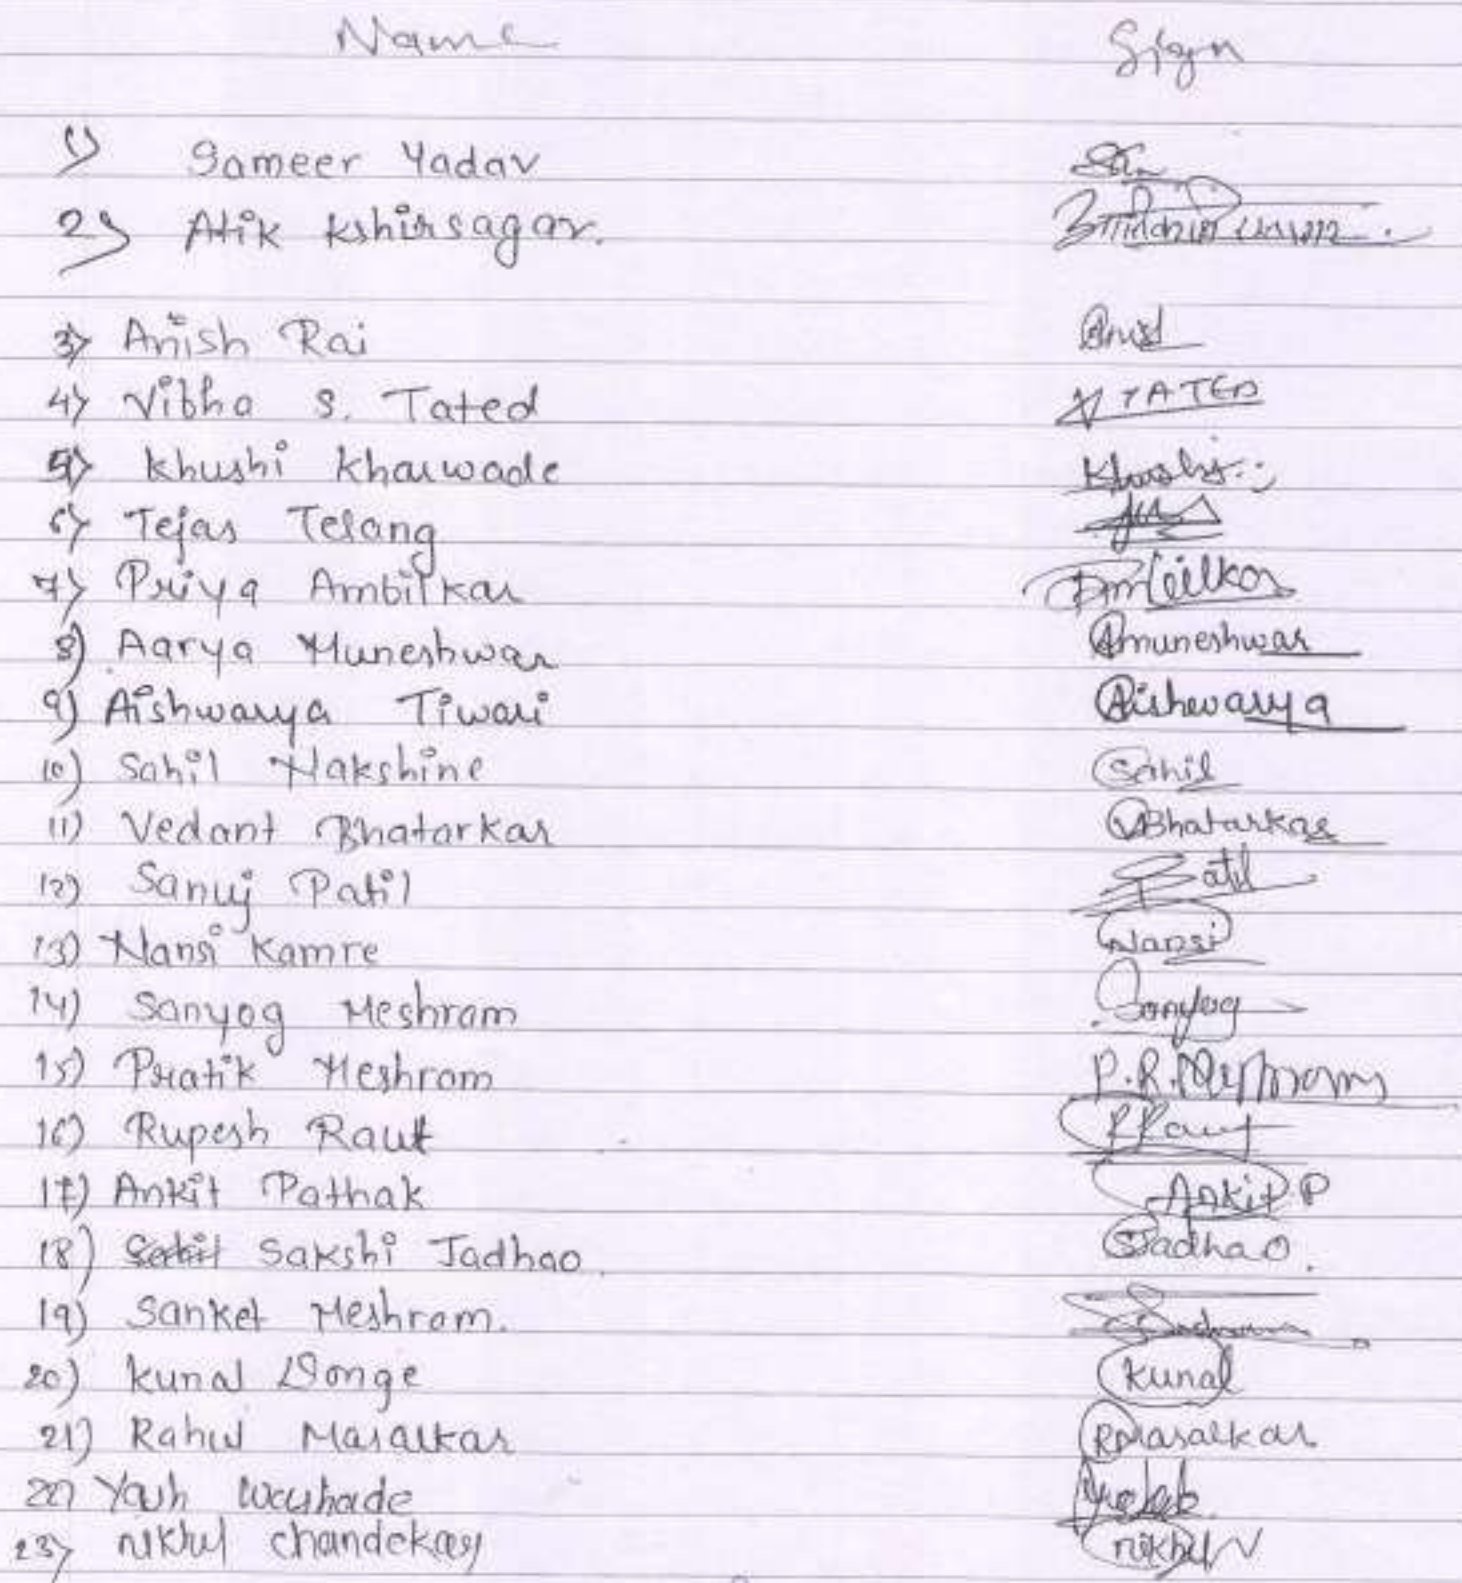 Name Sign
1) Sameer Yadav
2) Atik Kshirsagar.
3) Anish Rai Anish
4) Vibha S. Tated V TATED
5) Khushi Kharwade Khushi
6) Tejas Telang
7) Priya Ambilkar Ambilkar
8) Aarya Muneshwar Amuneshwar
9) Aishwarya Tiwari Aishwarya
10) Sahil Nakshine Sahil
11) Vedant Bhatarkar VBhatarkar
12) Sanuj Patil Patil
13) Nansi Kamre Nansi
14) Sanyog Meshram Sanyog
15) Pratik Meshram P.R. Meshram
16) Rupesh Raut RRaut
17) Ankit Pathak Ankit P
18) Sakshi Jadhao. SJadhao.
19) Sanket Meshram.
20) Kunal Donge Kunal
21) Rahul Masalkar RMasalkar
22) Yash
23) Nikhil